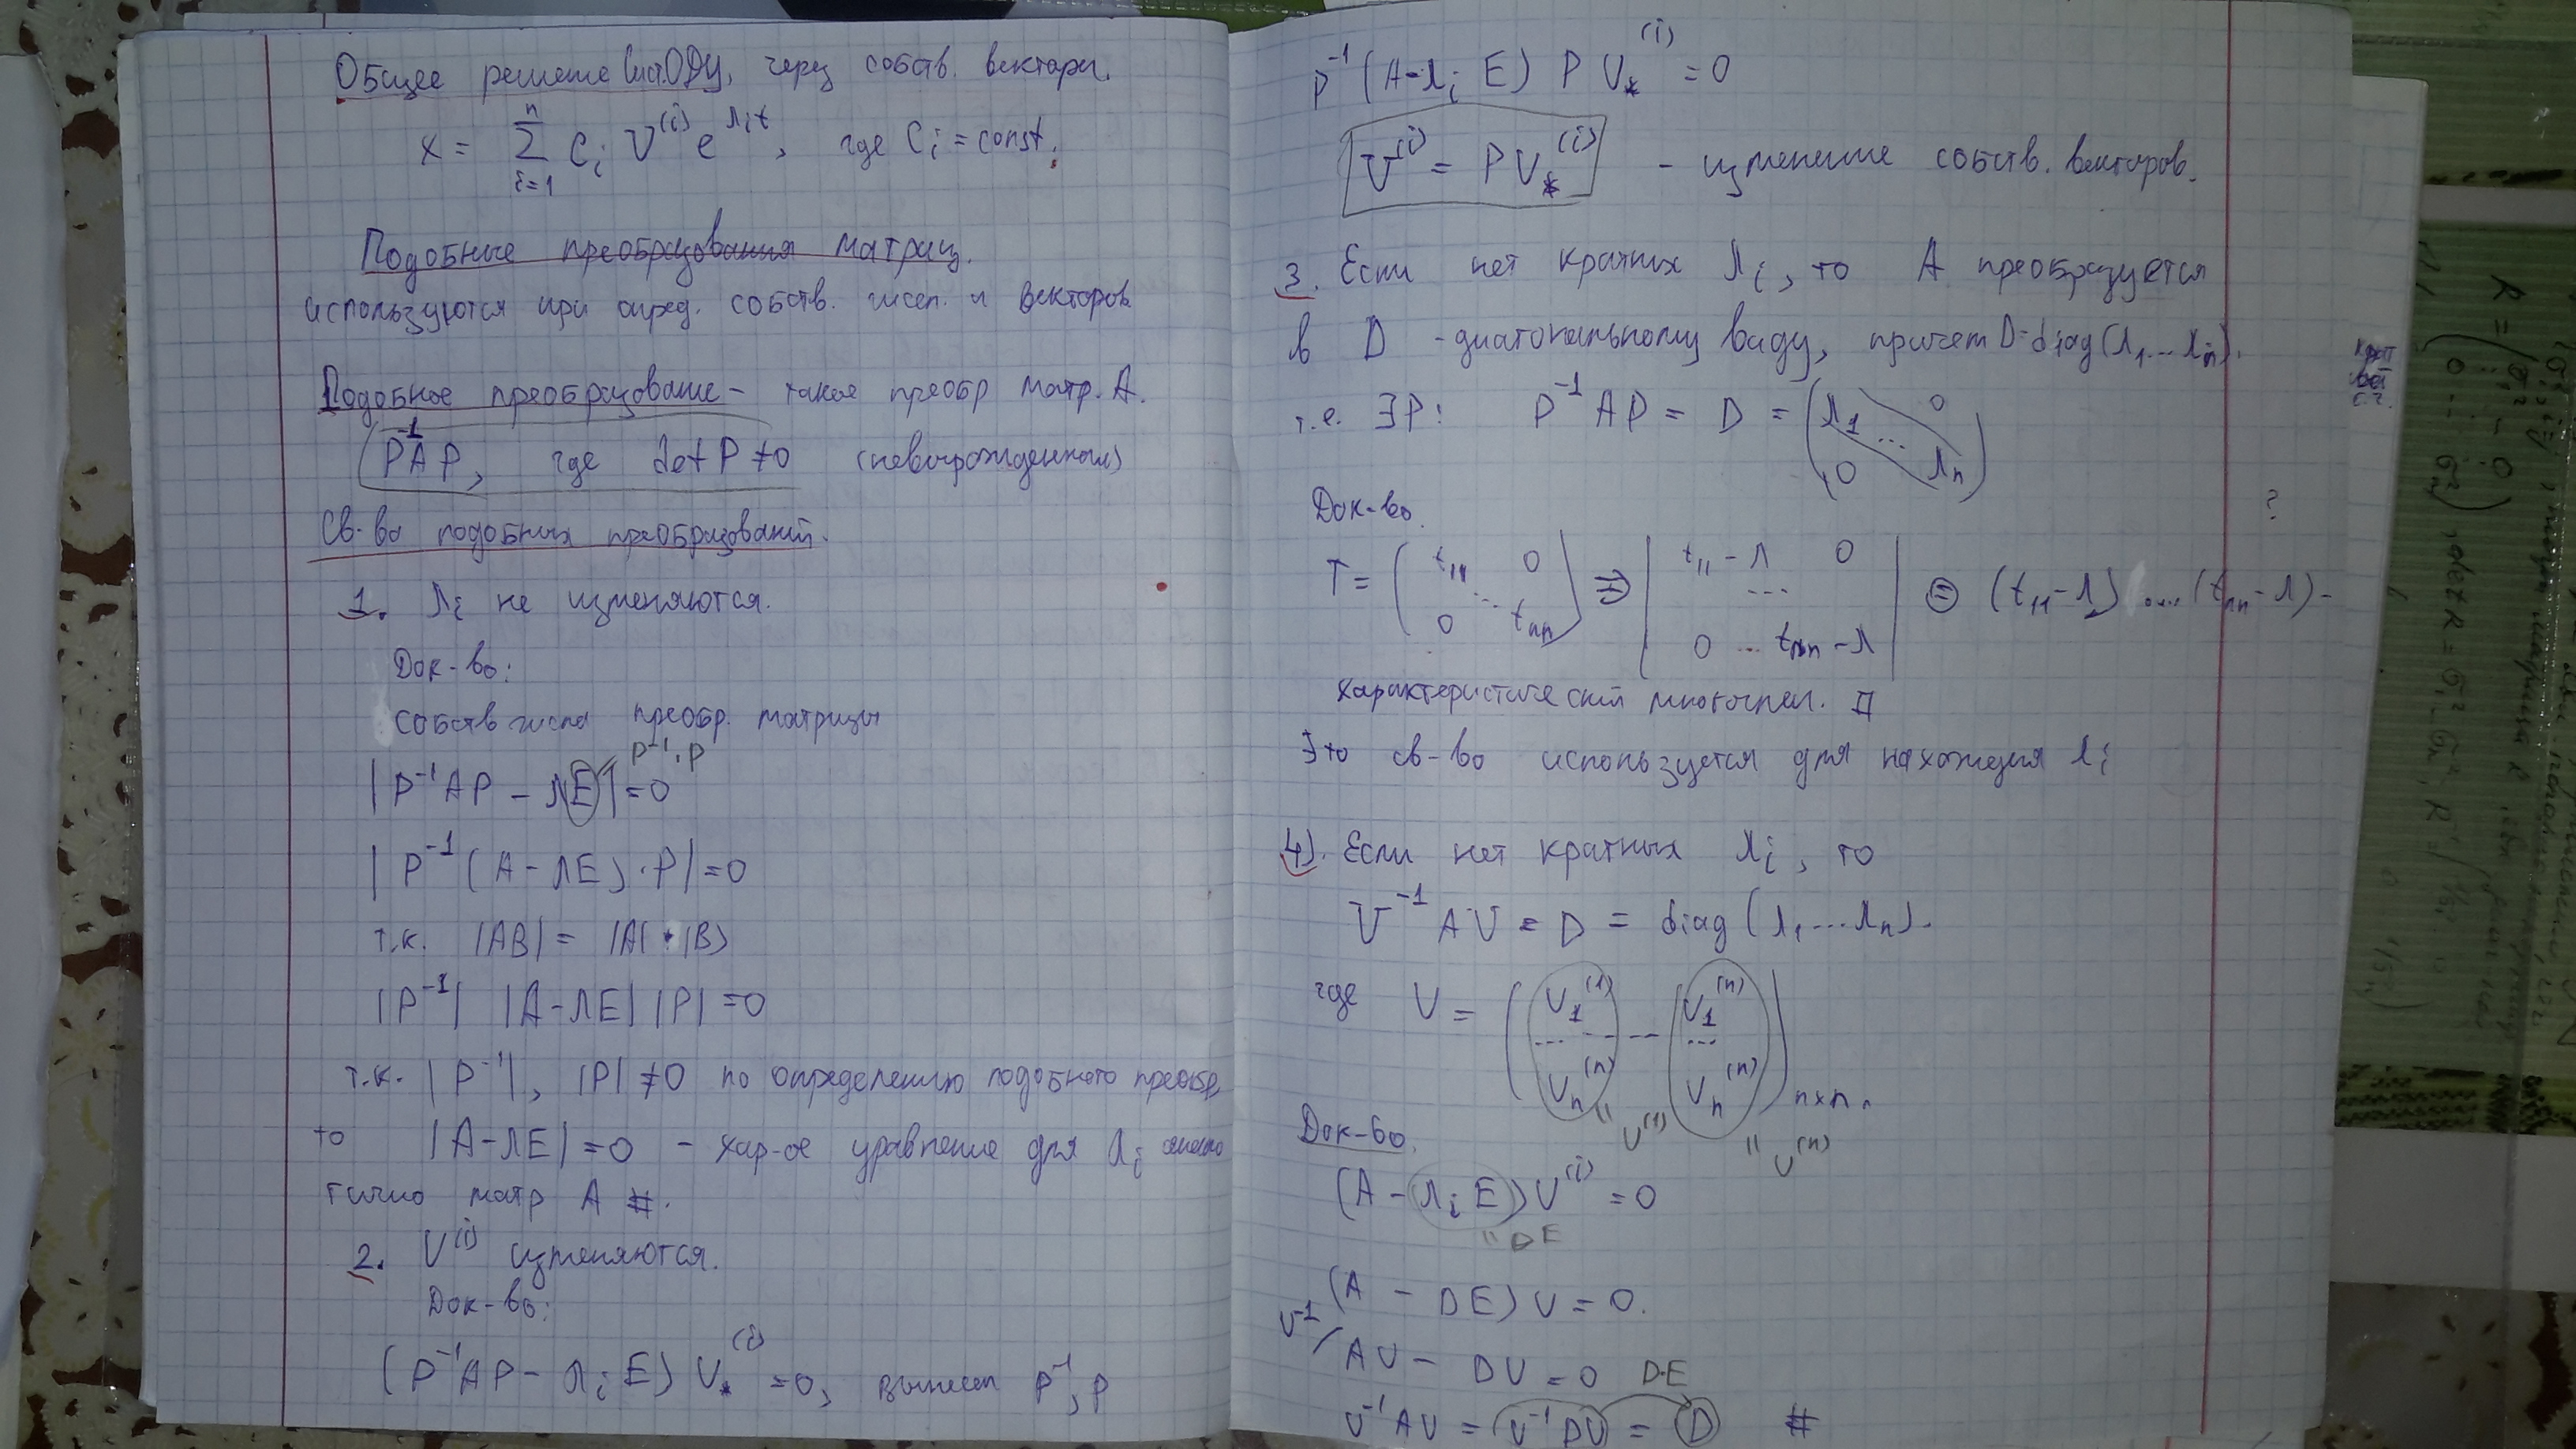 Общее решение сист. ОДУ, через собств. вектары.
x = Σ_{i=1}^{n} C_i V^{(i)} e^{λ_i t}, где C_i = const.
Подобные преобразования матриц.
используются при опред. собств. чисел и векторов
Подобное преобразование – такое преобр матр. A.
P^{-1}AP, где det P ≠ 0 (невырожденная)
Св-во подобных преобразований.
1. λ_i не изменяются.
Док-во:
собств числа преобр. матрицы
P^{-1}, P
|P^{-1}AP - λE| = 0
|P^{-1}(A - λE)·P| = 0
т.к. |AB| = |A|·|B|
|P^{-1}| |A - λE| |P| = 0
т.к. |P^{-1}|, |P| ≠ 0 по определению подобного преобр,
то |A - λE| = 0 – хар-ое уравнение для λ_i
матр A #.
2. V^{(i)} изменяются.
Док-во:
(P^{-1}AP - λ_i E) V_*^{(i)} = 0, вынесем P^{-1}, P
P^{-1}(A - λ_i E) P V_*^{(i)} = 0
V^{(i)} = P V_*^{(i)} – изменение собств. векторов.
3. Если нет кратных λ_i, то A преобразуется
в D - диагональному виду, причем D = diag(λ_1 ... λ_n).
т.е. ∃P: P^{-1}AP = D = (λ_1 0 ... 0 λ_n)
Док-во. ?
T = (t_{11} 0 ... 0 t_{nn}) ⇒ |t_{11} - λ 0 ... 0 ... t_{nn} - λ| = (t_{11} - λ) .... (t_{nn} - λ) -
характеристический многочлен. #
Это св-во используется для нахождения λ_i
4). Если нет кратных λ_i, то
V^{-1}AV = D = diag(λ_1 ... λ_n).
где V = (V_1^{(1)} ... V_1^{(n)} ... V_n^{(n)} ... V_n^{(n)})_{n×n}.
" V^{(1)} " V^{(n)}
Док-во.
(A - λ_i E) V^{(i)} = 0
" DE
(A - DE) V = 0.
V^{-1} / AV - DV = 0 D·E
V^{-1}AV = V^{-1}DV = D #